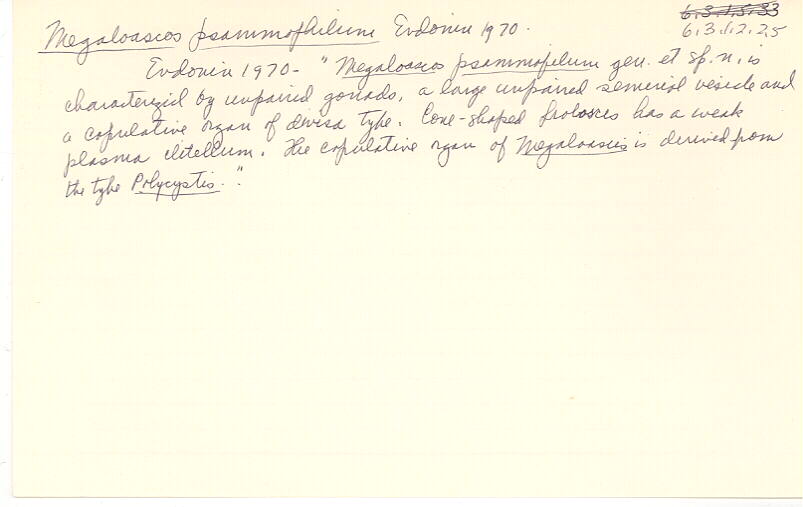 6.3.1.5.33
Megaloascos psammophilum Evdonin 1970.
6.3.1.2.25
Evdonin 1970- "Megaloascos psammofilum gen. et sp. n. is
characterized by unpaired gonads, a large unpaired seminal vesicle and
a copulative organ of divisa type. Cone-shaped proboscis has a weak
plasma clitellum. The copulative organ of Megaloascos is derived from
the type Polycystis."